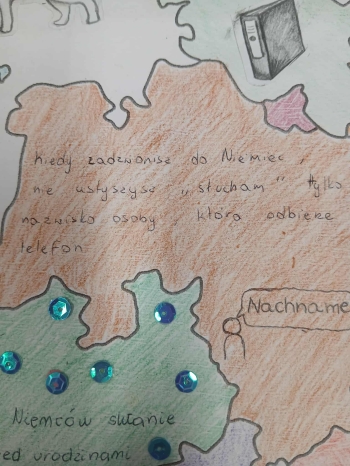 Kiedy zadzwonisz do Niemiec,
nie usłyszysz „słucham” tylko
nazwisko osoby, która odbierze
telefon
Nachname
Niemców składanie
zed urodzinami